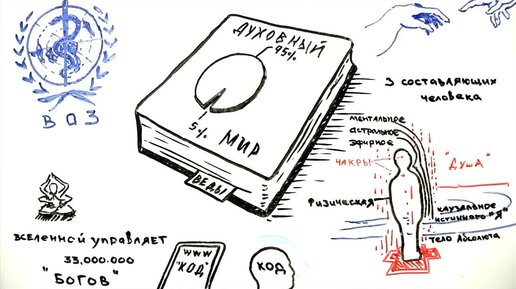 ВОЗ
ДУХОВНЫЙ
95%
5%
МИР
ВЕДЫ
3 составляющих
человека
ментальное
астральное
эфирное
ЧАКРЫ
"ДУША"
Физическая
каузальное
истинного "Я"
тело Абсолюта
ВСЕЛЕННОЙ УПРАВЛЯЕТ
33.000.000
"БОГОВ"
WWW
"КОД"
КОД